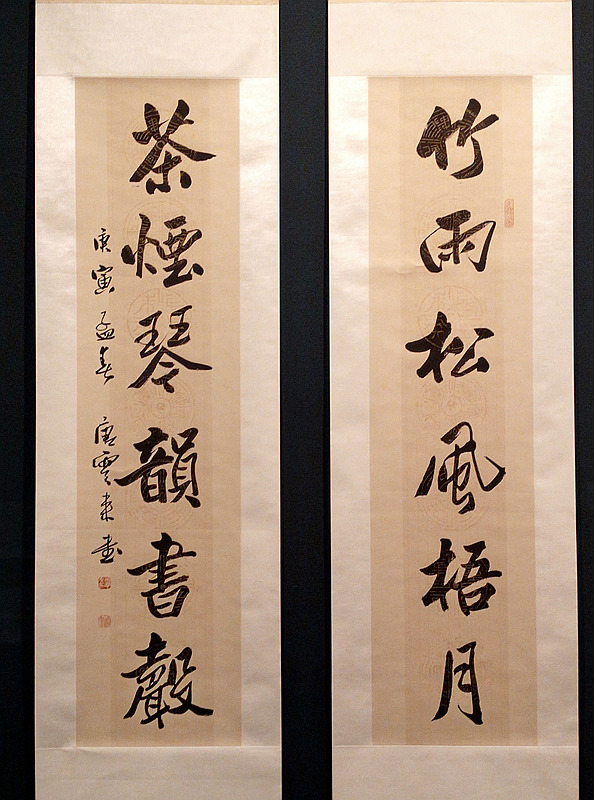 竹雨松風梧月
茶煙琴韻書聲
庚寅孟春 唐雲來書